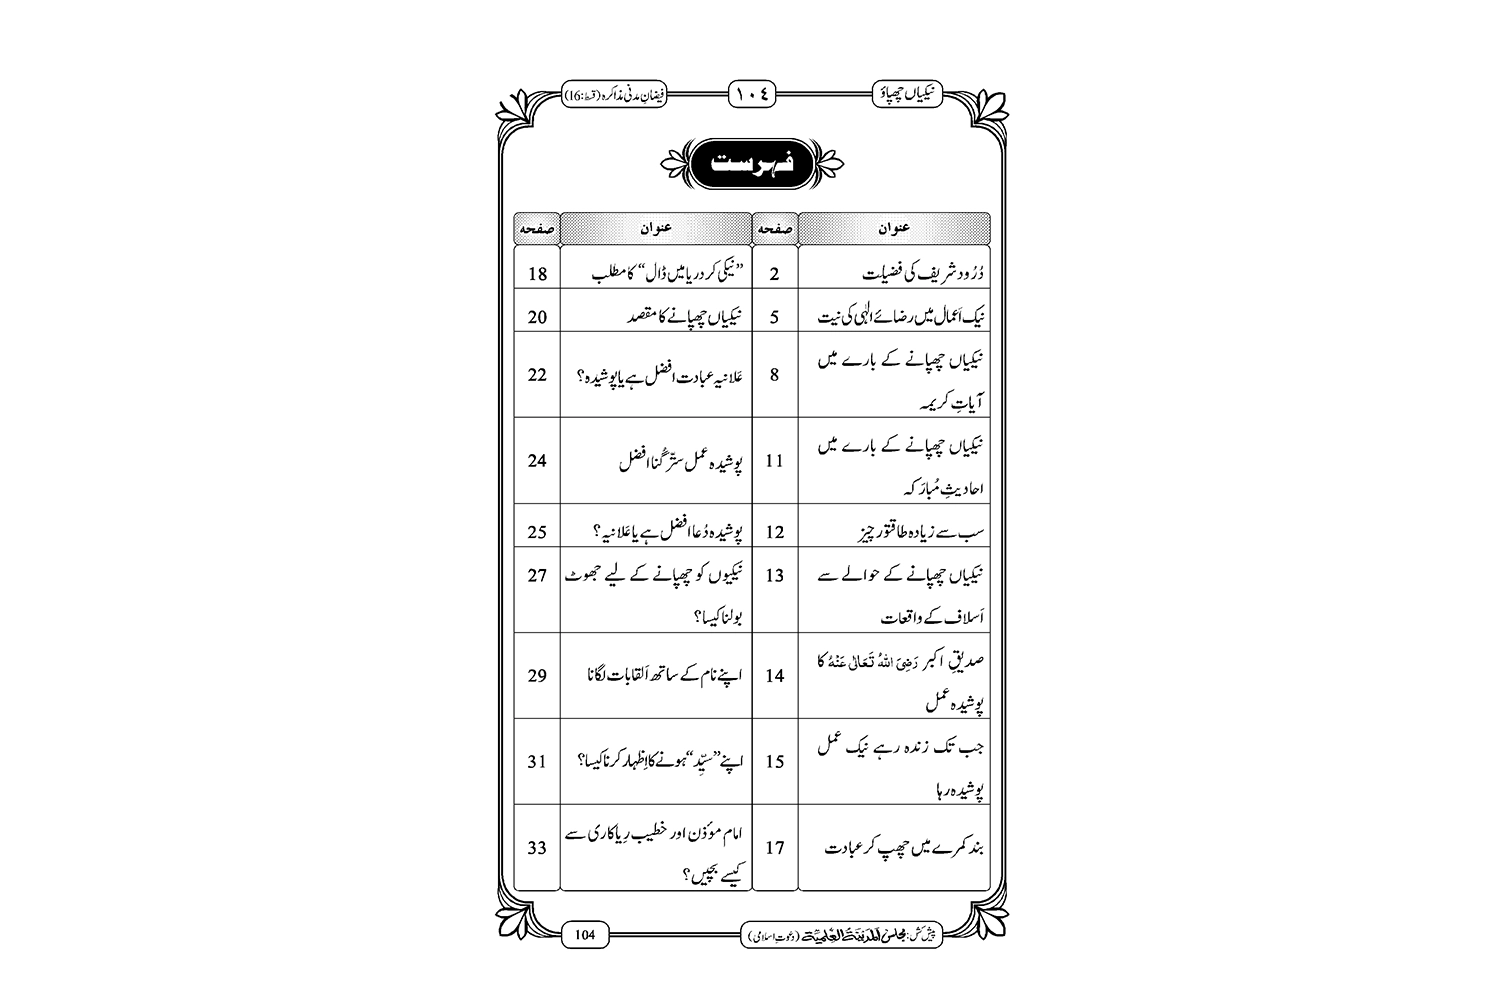 نیکیاں چھپاؤ ١٠٤ فیضانِ مدنی مذاکرہ (قسط:16)
فہرست
عنوان صفحہ عنوان صفحہ
دُرُود شریف کی فضیلت 2 ”نیکی کر دریا میں ڈال“ کا مطلب 18
نیک اَعمال میں رضائے الٰہی کی نیت 5 نیکیاں چھپانے کا مقصد 20
نیکیاں چھپانے کے بارے میں
آیاتِ کریمہ 8 عَلانیہ عبادت افضل ہے یا پوشیدہ؟ 22
نیکیاں چھپانے کے بارے میں
احادیثِ مُبارَکہ 11 پوشیدہ عمل سترّ گُنا افضل 24
سب سے زیادہ طاقتور چیز 12 پوشیدہ دُعا افضل ہے یا عَلانیہ؟ 25
نیکیاں چھپانے کے حوالے سے
اَسلاف کے واقعات 13 نیکیوں کو چھپانے کے لیے جھوٹ
بولنا کیسا؟ 27
صدیقِ اکبر رَضِیَ اللہُ تَعَالٰی عَنْہُ کا
پوشیدہ عمل 14 اپنے نام کے ساتھ اَلقابات لگانا 29
جب تک زندہ رہے نیک عمل
پوشیدہ رہا 15 اپنے ”سیِّد“ ہونے کا اِظہار کرنا کیسا؟ 31
بند کمرے میں چھپ کر عبادت 17 امام مؤذن اور خطیب رِیاکاری سے
کیسے بچیں؟ 33
پیش کش: مجلس المدینۃ العلمیۃ (دعوتِ اسلامی) 104